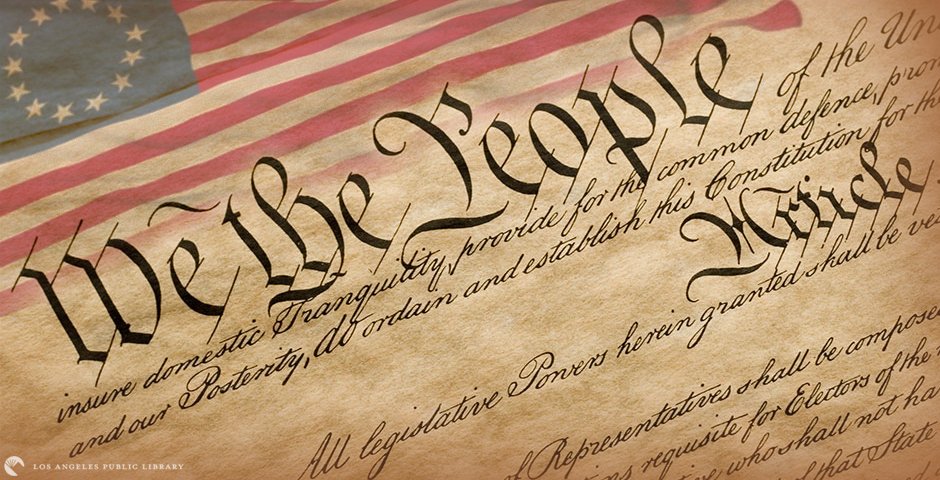 We the People of the Un
insure domestic Tranquility, provide for the common defence, pro
and our Posterity, do ordain and establish this Constitution for the
Article
All legislative Powers herein granted shall be ves
of Representatives shall be compose
requisite for Electors of the
who shall not ha
of that State
LOS ANGELES PUBLIC LIBRARY